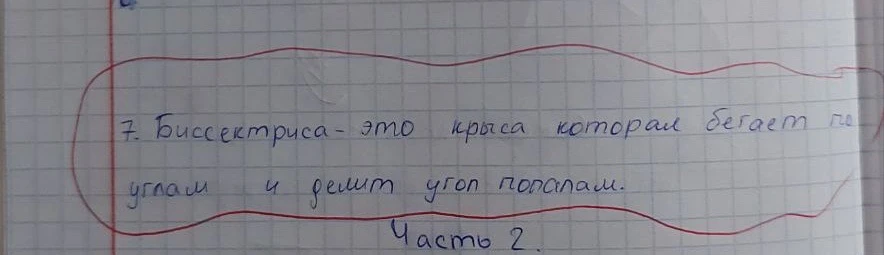 7. Биссектриса - это крыса которая бегает по
углам и делит угол попалам.
Часть 2.